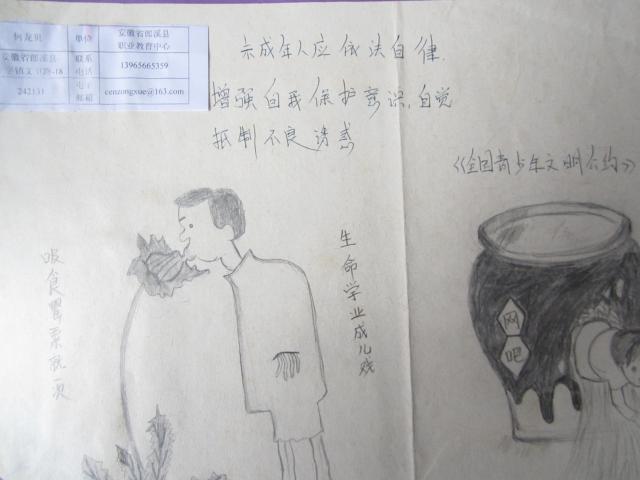 单位
安徽省郎溪县
职业教育中心
安徽省郎溪县
联系
电话
13965665359
242131
电子
邮箱
cenzongxue@163.com
未成年人应依法自律
增强自我保护意识,自觉
抵制不良诱惑
《全国青少年文明公约》
吸食罂粟就一次
生命学业成儿戏
网
吧